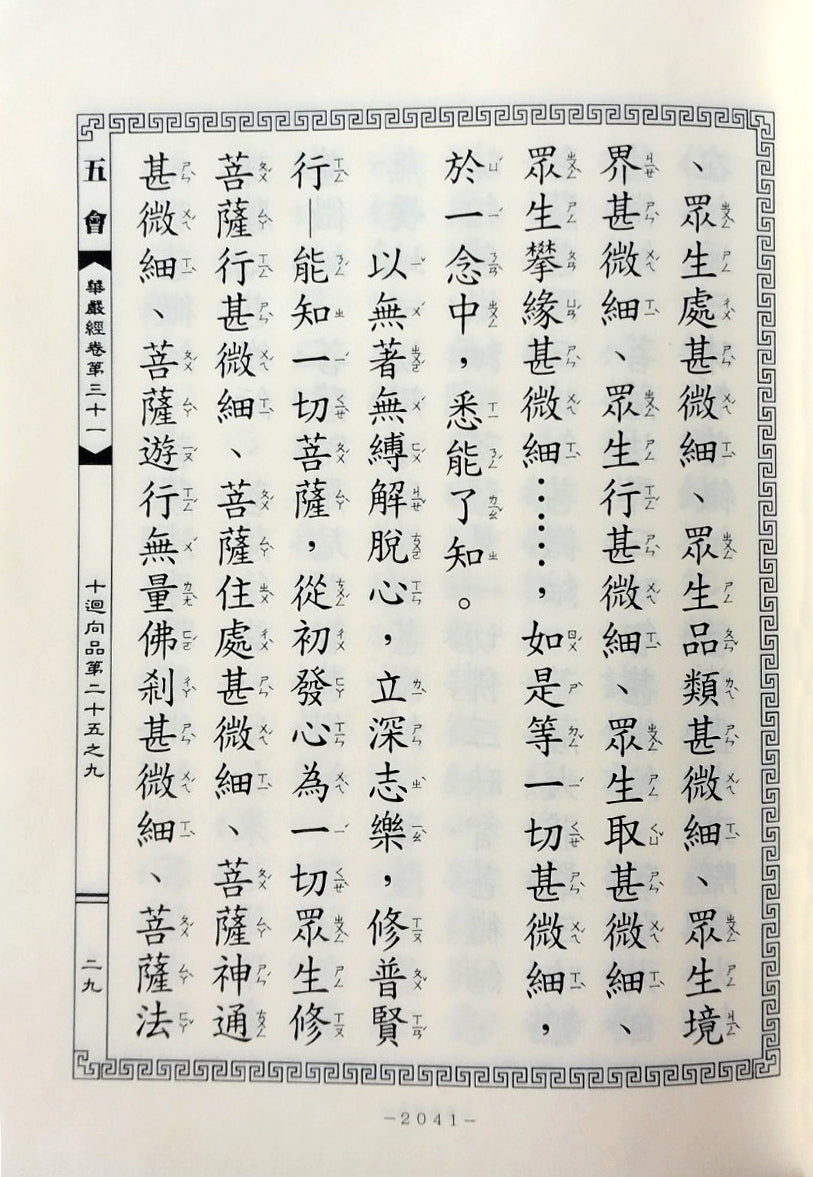 、眾生處甚微細、眾生品類甚微細、眾生境
界甚微細、眾生行甚微細、眾生取甚微細、
眾生攀緣甚微細……，如是等一切甚微細，
於一念中，悉能了知。
以無著無縛解脫心，立深志樂，修普賢
行—能知一切菩薩，從初發心為一切眾生修
菩薩行甚微細、菩薩住處甚微細、菩薩神通
甚微細、菩薩遊行無量佛剎甚微細、菩薩法
五會
華嚴經卷第三十一
十迴向品第二十五之九
二九
－2041－